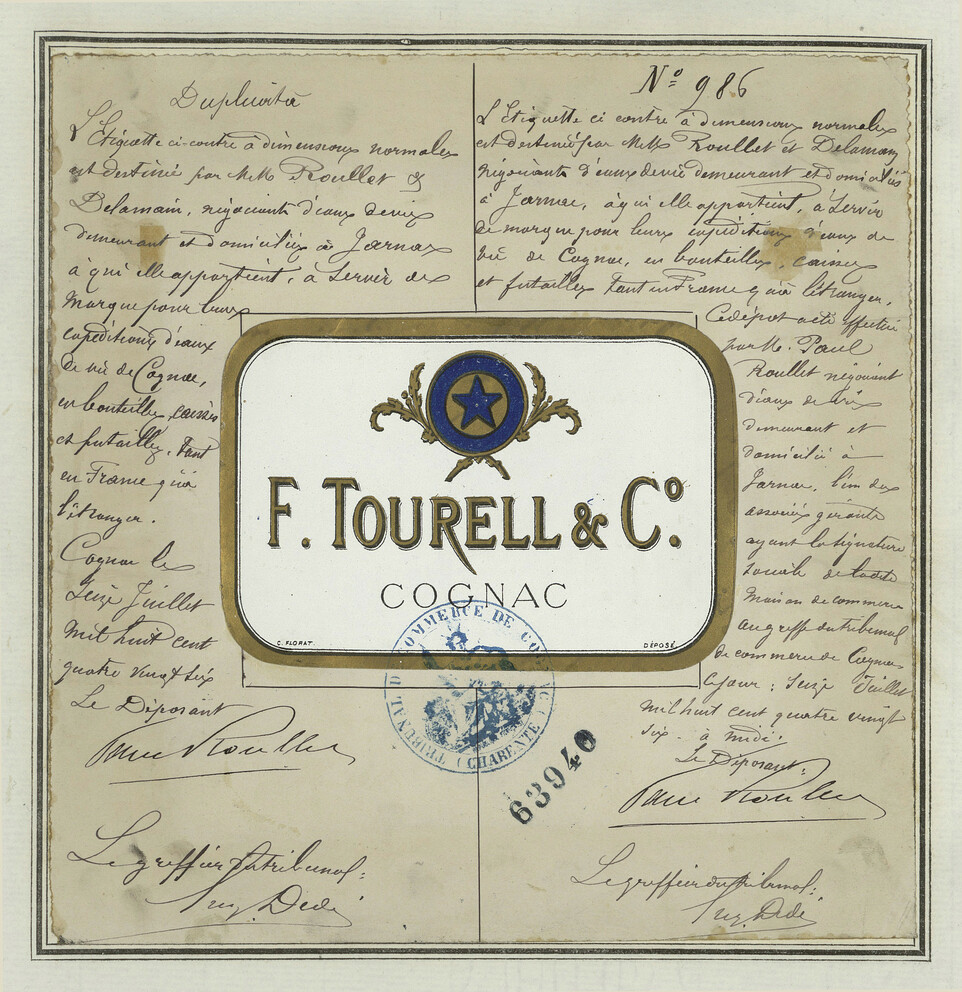 Duplicata
L'Etiquette ci-contre à dimensions normales
est destinée par M.M. Roullet &
Delamain, négociants d'eaux de vie
demeurant et domiciliés à Jarnac
à qui elle appartient, à servir de
marque pour leurs
expéditions d'eaux
de vie de Cognac,
en bouteilles, caisses
et futailles, tant
en France qu'à
l'étranger.
Cognac le
Seize Juillet
mil huit cent
quatre vingt six
Le Déposant
Paul Roullet
Le greffier du tribunal:
Dédé
N° 986
L'Etiquette ci contre à dimensions normales
est destinée par M.M. Roullet et Delamain
négociants d'eaux de vie demeurant et domiciliés
à Jarnac, à qui elle appartient, à servir
de marque pour leurs expéditions d'eaux de
vie de Cognac, en bouteilles, caisses
et futailles tant en France qu'à l'étranger.
Ce dépot a été effectué
par M. Paul
Roullet négociant
d'eaux de vie
demeurant et
domicilié à
Jarnac, l'un des
associés gérants
ayant la signature
sociale de ladite
maison de commerce
au greffe du tribunal
de commerce de Cognac
ce jour: Seize Juillet
mil huit cent quatre vingt
six - à midi.
Le Déposant:
Paul Roullet
Le greffier du tribunal:
Dédé
F. TOURELL & Cº.
COGNAC
C. FLORAT.
DÉPOSÉ
TRIBUNAL DE COMMERCE DE COGNAC (CHARENTE)
63940